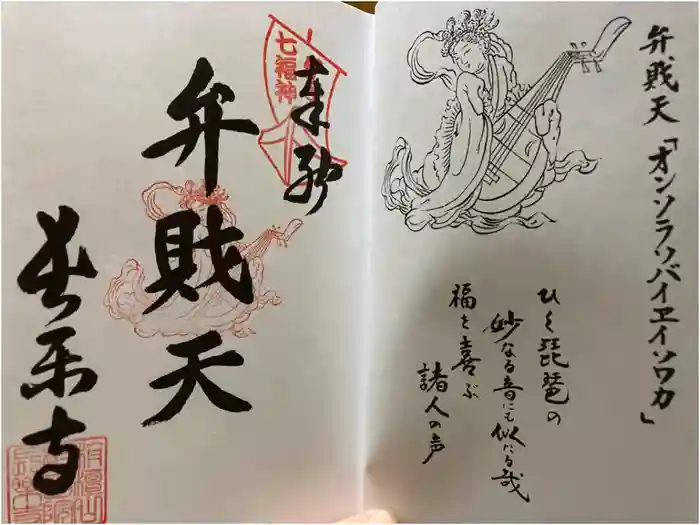 弁戝天「オンソラソバイヱイソワカ」
ひく琵琶の
妙なる音にも似たる哉
福を喜ぶ
諸人の声
七福神
奉拝
弁戝天
長楽寺